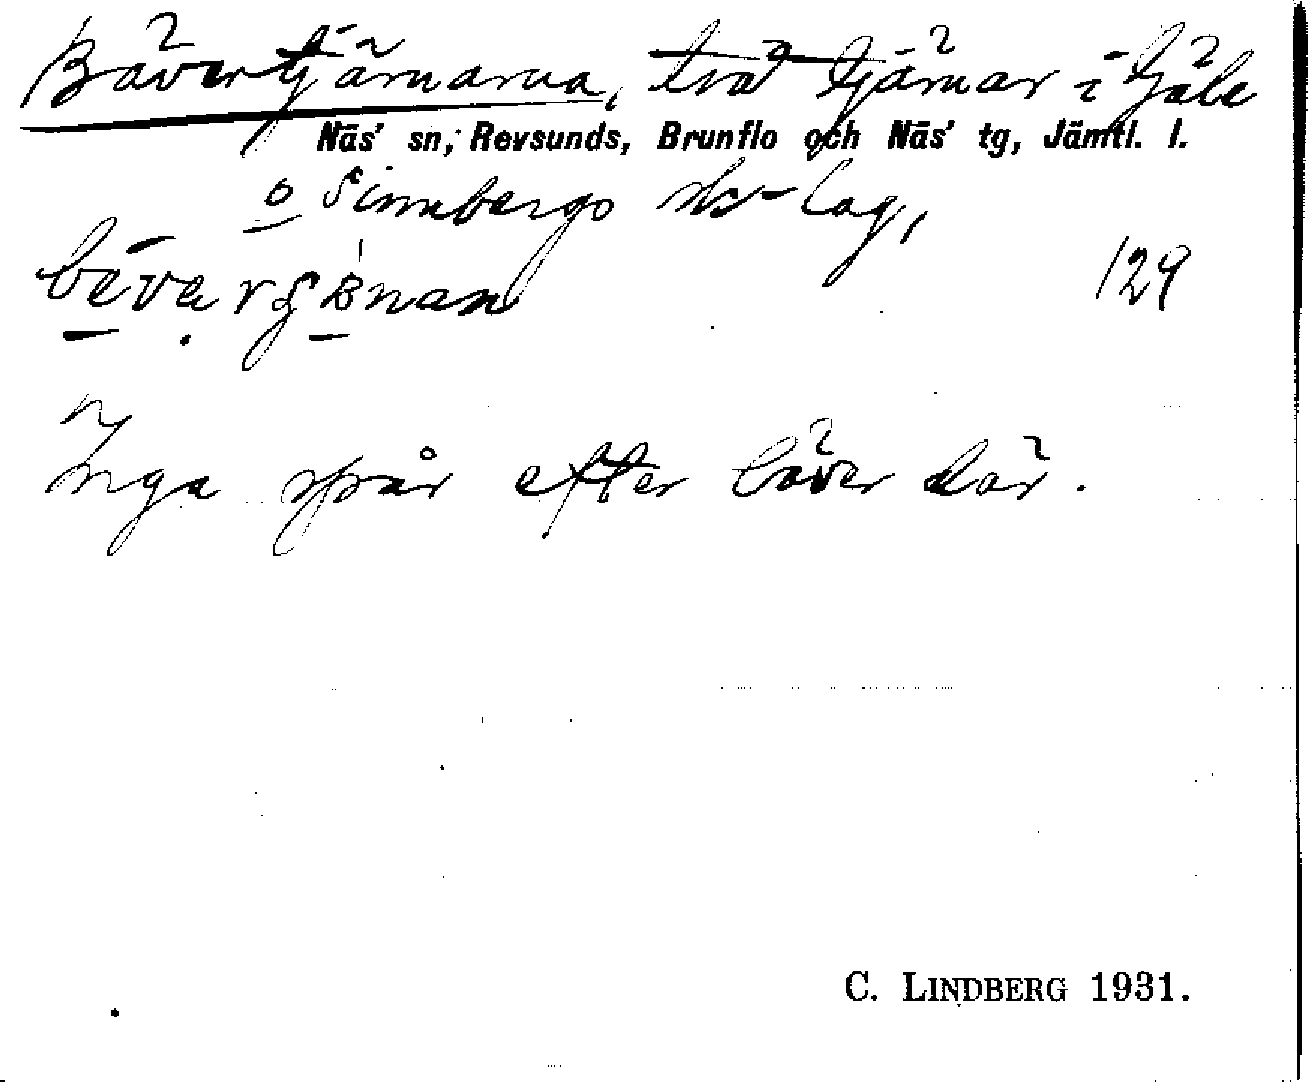 Bävertjärnarna, två tjärnar i Fjäle
Näs' sn; Revsunds, Brunflo och Näs' tg, Jämtl. l.
o Sinnbergs sks-lag,
129
Inga spår efter bäver där.
C. LINDBERG 1931.